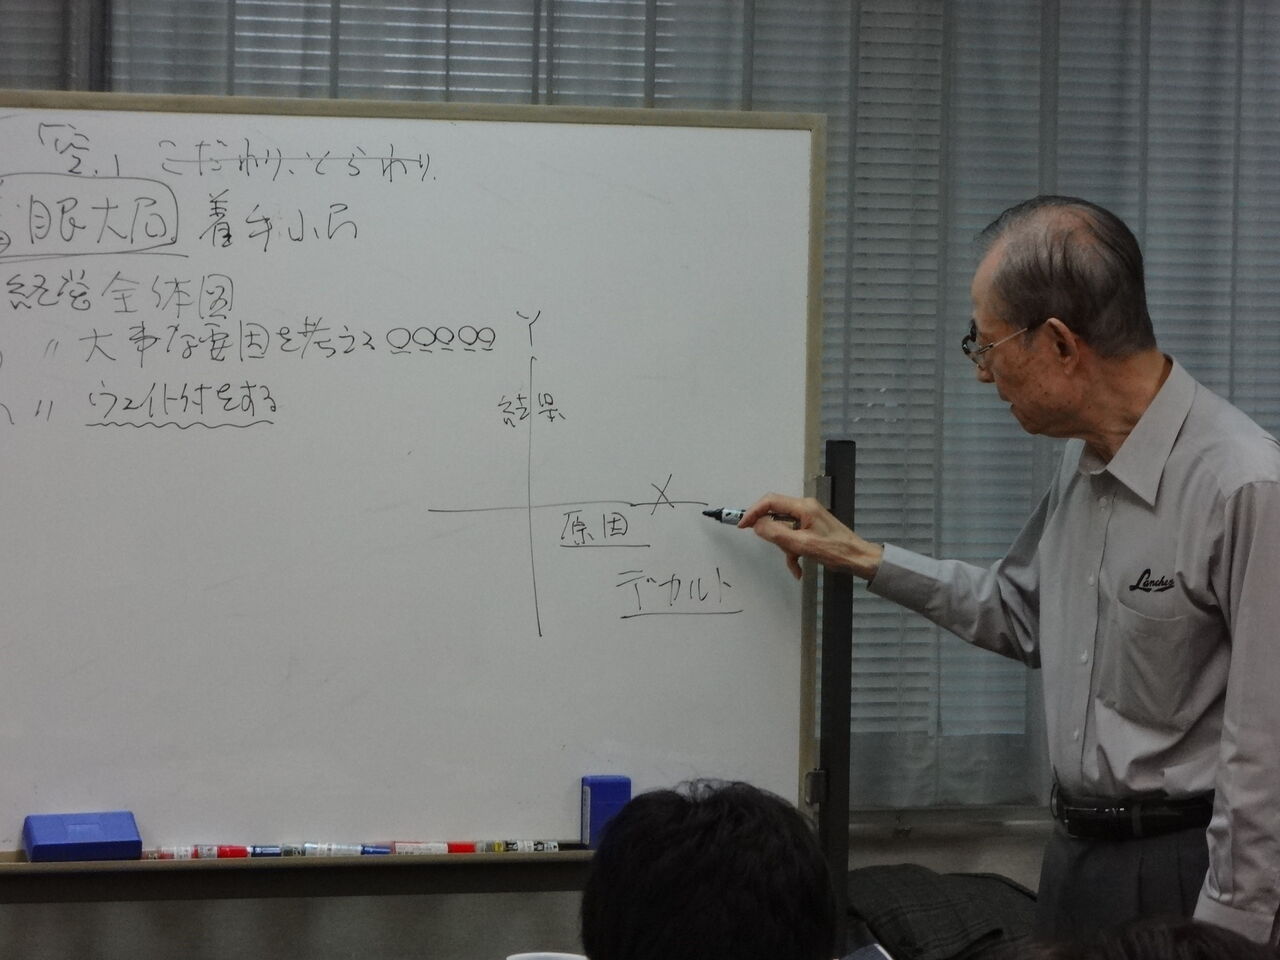 「空」 こだわり、とらわり
着眼大局 着手小局
経営全体図
〃 大事な要因を考える ○○○○○
〃 ウエイト付をする
Y
結果
X
原因
デカルト